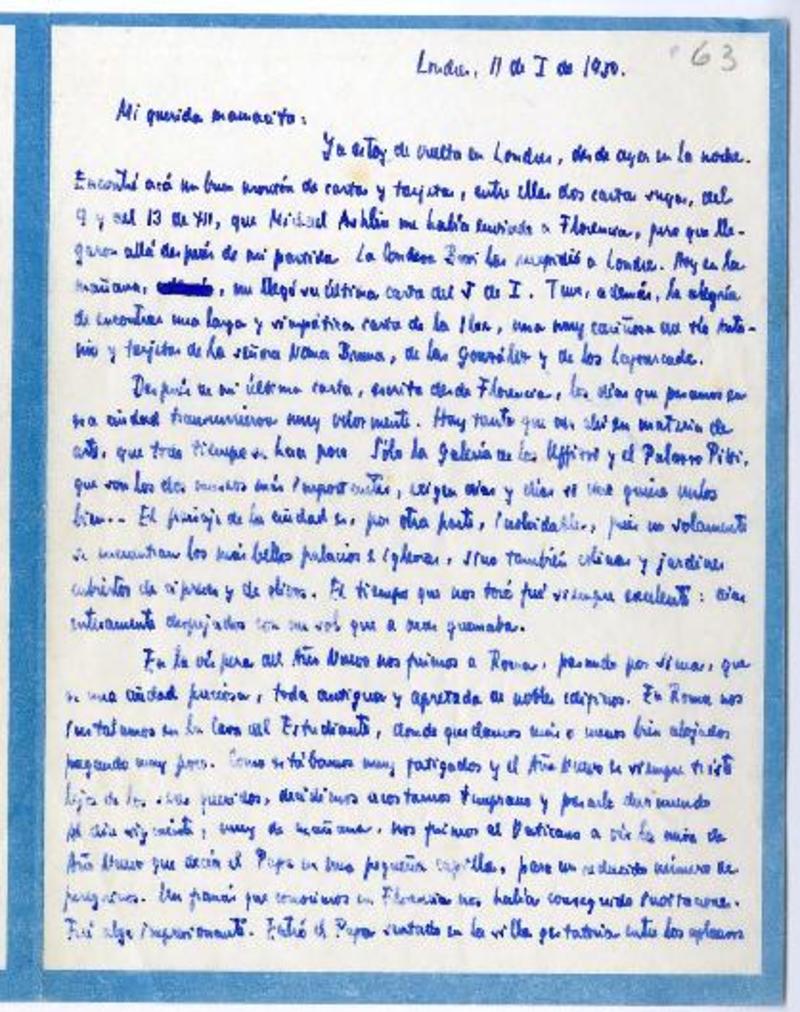 63
Londres, 11 de I de 1950.
Mi querida mamacita:
Ya estoy de vuelta en Londres, desde ayer en la noche.
Encontré acá un buen montón de cartas y tarjetas, entre ellas dos cartas suyas, del
9 y del 13 de XII, que Michael me había enviado a Florencia, pero que lle-
garon allá después de mi partida. La Condesa las reexpidió a Londres. Hoy en la
mañana, me llegó su última carta del 5 de I. Tuve, además, la alegría
de encontrar una larga y simpática carta de la una muy cariñosa del tío Anto-
nio y tarjetas de la señora Nana Bruna, de las González y de los Layourcade.
Después de mi última carta, escrita desde Florencia, los días que pasamos en
esa ciudad transcurrieron muy velozmente. Hay tanto que ver ahí en materia de
arte, que todo tiempo se hace poco. Sólo la Galería de los Uffizzi y el Palazzo Pitti,
que son los dos museos más importantes, exigen días y días si uno quiere verlos
bien.- El paisaje de la ciudad es, por otra parte, inolvidable, pues no solamente
se encuentran los más bellos palacios e iglesias, sino también colinas y jardines
cubiertos de cipreses y de olivos. El tiempo que nos tocó fué siempre excelente: días
enteramente despejados con un sol que a veces quemaba.
En la víspera del Año Nuevo nos fuimos a Roma, pasando por Siena, que
es una ciudad preciosa, toda antigua y apretada de nobles edificios. En Roma nos
instalamos en la Casa del Estudiante, donde quedamos más o menos bien alojados
pagando muy poco. Como estábamos muy fatigados y el Año Nuevo es siempre triste
lejos de los seres queridos, decidimos acostarnos temprano y pasarlo durmiendo.
Al día siguiente, muy de mañana, nos fuimos al Vaticano a oír la misa de
Año Nuevo que decía el Papa en una pequeña capilla, para un reducido número de
peregrinos. Un francés que conocimos en Florencia nos había conseguido invitaciones.
Fué algo impresionante. Entró el Papa sentado en la silla gestatoria entre los aplausos